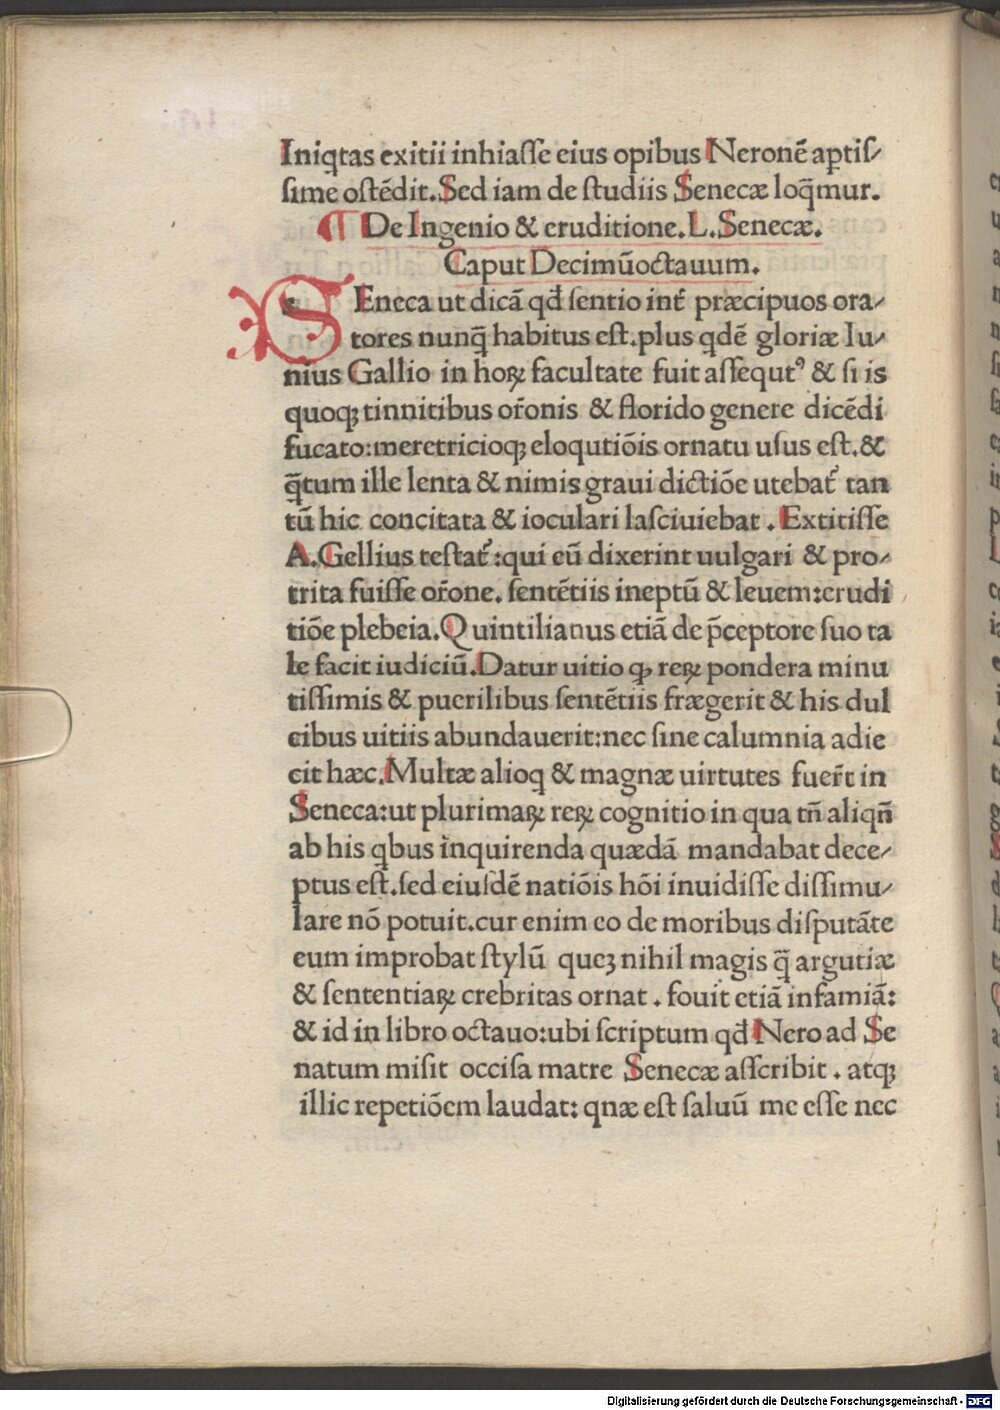 Iniqtas exitii inhiasse eius opibus Neronē aptis⸗
sime ostēdit. Sed iam de studiis Senecæ loq̄mur.
¶ De Ingenio & eruditione. L. Senecæ.
Caput Decimūoctauum.
SEneca ut dicā qđ sentio int̄ præcipuos ora⸗
tores nunq̄ habitus est. plus qdē gloriæ Iu⸗
nius Gallio in hoꝝ facultate fuit assequtꝰ & si is
quoqꝫ tinnitibus or̄onis & florido genere dicēdi
fucato: meretricioqꝫ eloqutiōis ornatu usus est. &
q̄tum ille lenta & nimis graui dictiōe utebat̄ tan
tū hic concitata & ioculari lasciuiebat. Extitisse
A. Gellius testat̄: qui eū dixerint uulgari & pro⸗
trita fuisse or̄one. sentētiis ineptū & leuem: erudi
tiōe plebeia. Quintilianus etiā de p̄ceptore suo ta
le facit iudiciū. Datur uitio ꝙ reꝝ pondera minu
tissimis & puerilibus sentētiis frægerit & his dul
cibus uitiis abundauerit: nec sine calumnia adie
cit hæc. Multæ alioq & magnæ uirtutes fuer̄t in
Seneca: ut plurimaꝝ reꝝ cognitio in qua tn̄ aliqn̄
ab his qbus inquirenda quædā mandabat dece⸗
ptus est. sed eiusdē natiōis hōi inuidisse dissimu⸗
lare nō potuit. cur enim eo de moribus disputāte
eum improbat stylū queꝫ nihil magis q̄ argutiæ
& sententiaꝝ crebritas ornat. fouit etiā infamiā:
& id in libro octauo: ubi scriptum qđ Nero ad Se
natum misit occisa matre Senecæ asscribit. atqꝫ
illic repetiōem laudat: qnæ est saluū me esse nec
Digitalisierung gefördert durch die Deutsche Forschungsgemeinschaft - DFG